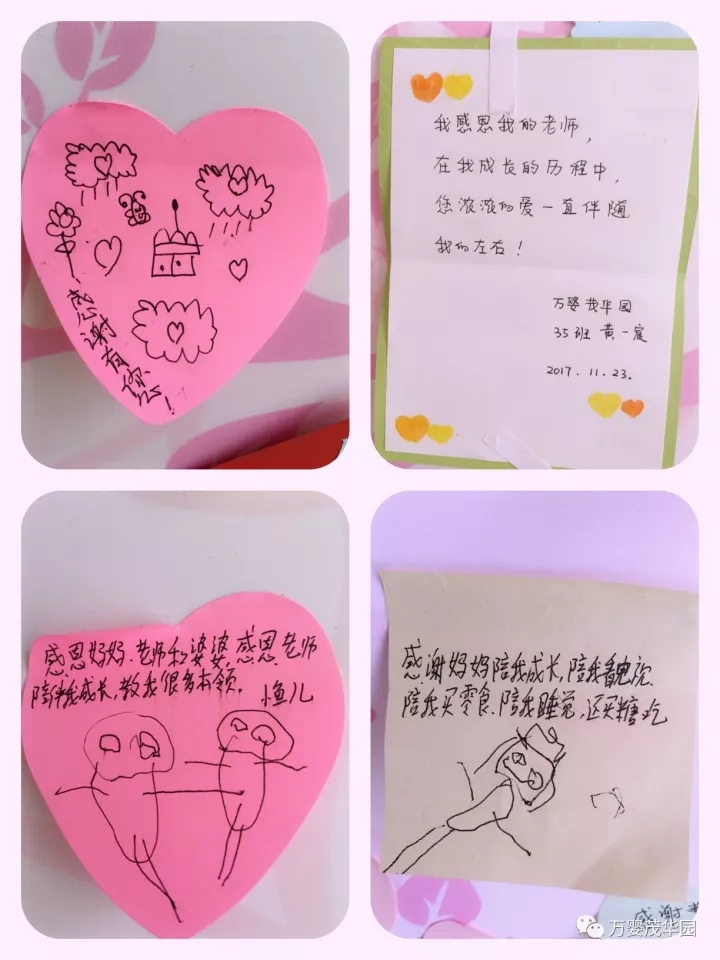 感谢有您!
我感恩我的老师,
在我成长的历程中,
您浓浓的爱一直伴随
我的左右!
万婴茂华园
35班 黄一宸
2017.11.23.
感恩妈妈、老师和婆婆,感恩老师
陪伴我成长,教我很多本领。 小鱼儿
感谢妈妈陪我成长,陪我看电视、
陪我买零食、陪我睡觉,还买糖吃
感谢
万婴茂华园